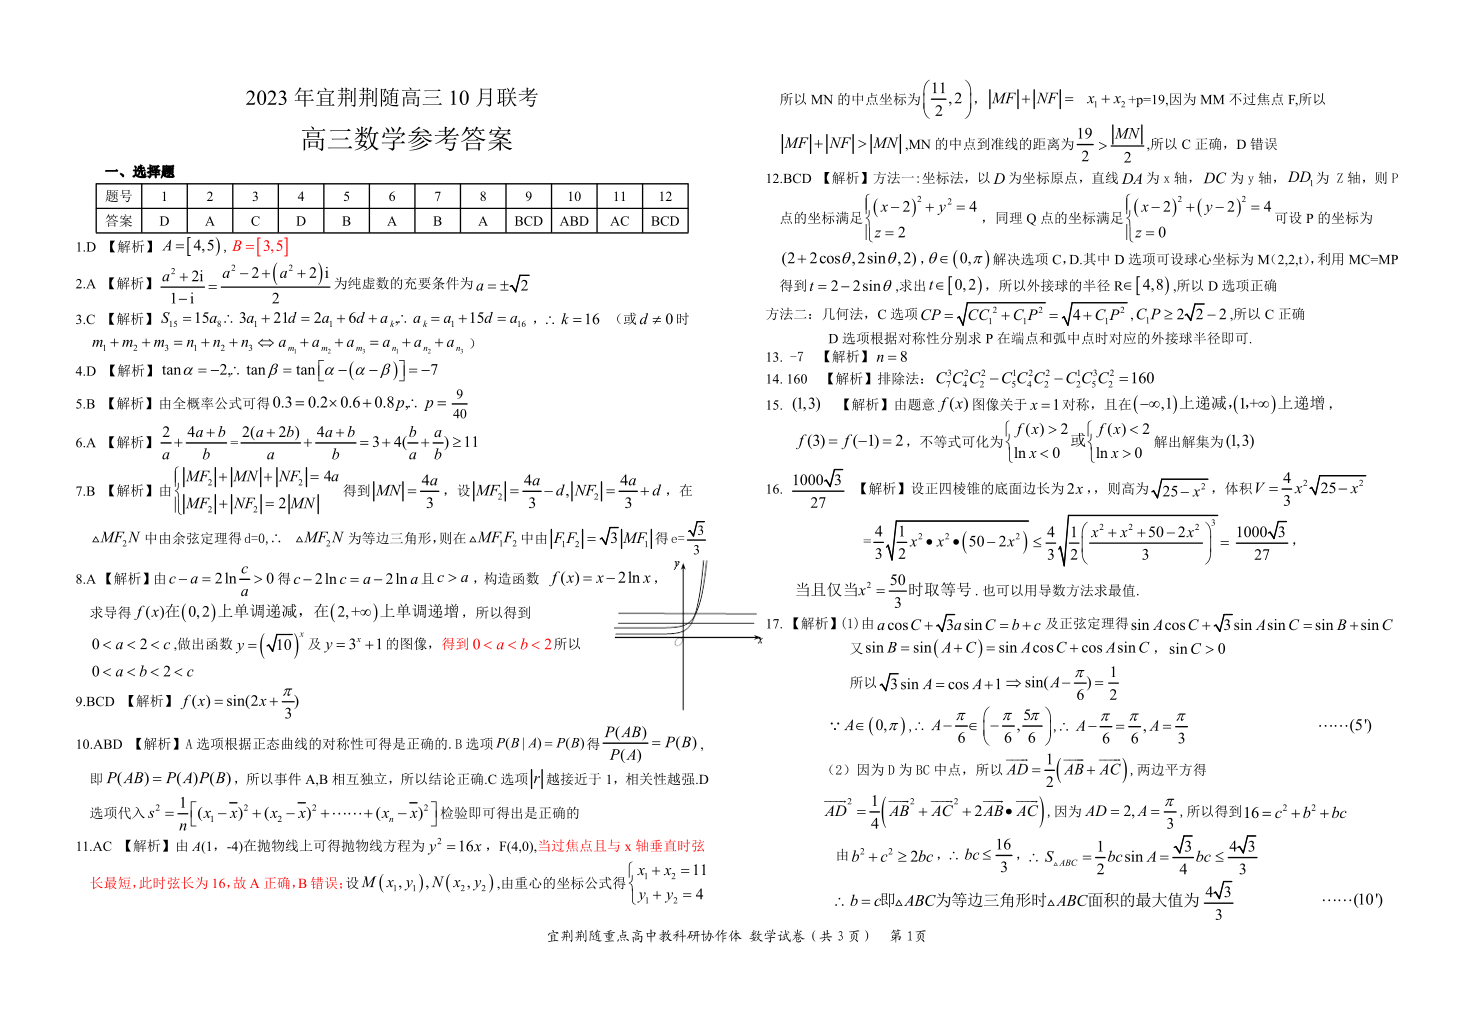 2023 年宜荆荆随高三 10 月联考
高三数学参考答案
一、选择题
题号 1 2 3 4 5 6 7 8 9 10 11 12
答案 D A C D B A B A BCD ABD AC BCD
1.D 【解析】A=[4,5), B=[3,5]
2.A 【解析】(a²+2i)/(1−i) = (a²−2+(a²+2)i)/2 为纯虚数的充要条件为 a=±√2
3.C 【解析】S₁₅=15a₈∴3a₁+21d=2a₁+6d+a_k,∴a_k=a₁+15d=a₁₆，∴k=16 （或 d≠0 时
m₁+m₂+m₃=n₁+n₂+n₃⇔a_{m₁}+a_{m₂}+a_{m₃}=a_{n₁}+a_{n₂}+a_{n₃}）
4.D 【解析】tanα=−2,∴tanβ=tan[α−(α−β)]=−7
5.B 【解析】由全概率公式可得 0.3=0.2×0.6+0.8p,∴p=9/40
6.A 【解析】2/a+(4a+b)/b=2(a+2b)/a+(4a+b)/b=3+4(b/a+a/b)≥11
7.B 【解析】由{|MF₂|+|MN|+|NF₂|=4a |MF₂|+|NF₂|=2|MN| 得到|MN|=4a/3，设|MF₂|=4a/3−d,|NF₂|=4a/3+d，在
△MF₂N 中由余弦定理得 d=0,∴ △MF₂N 为等边三角形,则在△MF₁F₂中由|F₁F₂|=√3|MF₁|得 e=√3/3
8.A 【解析】由 c−a=2ln c/a>0 得 c−2ln c=a−2ln a 且 c>a，构造函数 f(x)=x−2ln x，
求导得 f(x)在(0,2)上单调递减，在(2,+∞)上单调递增，所以得到
0<a<2<c,做出函数 y=(√10)^x 及 y=3^x+1 的图像，得到 0<a<b<2所以
0<a<b<2<c
y
O
x
9.BCD 【解析】f(x)=sin(2x+π/3)
10.ABD 【解析】A 选项根据正态曲线的对称性可得是正确的. B 选项 P(B|A)=P(B)得 P(AB)/P(A)=P(B),
即 P(AB)=P(A)P(B)，所以事件 A,B 相互独立，所以结论正确.C 选项|r|越接近于 1，相关性越强.D
选项代入 s²=1/n[(x₁−x̄)²+(x₂−x̄)²+……+(xₙ−x̄)²]检验即可得出是正确的
11.AC 【解析】由 A(1，-4)在抛物线上可得抛物线方程为 y²=16x，F(4,0),当过焦点且与 x 轴垂直时弦
长最短,此时弦长为 16,故 A 正确,B 错误;设 M(x₁,y₁),N(x₂,y₂),由重心的坐标公式得{x₁+x₂=11 y₁+y₂=4
所以 MN 的中点坐标为(11/2,2)，|MF|+|NF|= x₁+x₂+p=19,因为 MM 不过焦点 F,所以
|MF|+|NF|>|MN|,MN 的中点到准线的距离为 19/2>|MN|/2,所以 C 正确，D 错误
12.BCD 【解析】方法一:坐标法，以 D 为坐标原点，直线 DA 为 x 轴，DC 为 y 轴，DD₁为 Z 轴，则 P
点的坐标满足{(x−2)²+y²=4 z=2，同理 Q 点的坐标满足{(x−2)²+(y−2)²=4 z=0 可设 P 的坐标为
(2+2cosθ,2sinθ,2),θ∈(0,π)解决选项 C,D.其中 D 选项可设球心坐标为 M(2,2,t)，利用 MC=MP
得到 t=2−2sinθ,求出 t∈[0,2)，所以外接球的半径 R∈[4,8),所以 D 选项正确
方法二：几何法，C 选项 CP=√(CC₁²+C₁P²)=√(4+C₁P²),C₁P≥2√2−2,所以 C 正确
D 选项根据对称性分别求 P 在端点和弧中点时对应的外接球半径即可.
13. -7 【解析】n=8
14. 160 【解析】排除法：C₇³C₄²C₂²−C₅¹C₄²C₂²−C₂¹C₅³C₂²=160
15. (1,3) 【解析】由题意 f(x)图像关于 x=1对称，且在(−∞,1)上递减,(1,+∞)上递增，
f(3)=f(−1)=2，不等式可化为{f(x)>2 ln x<0 或{f(x)<2 ln x>0 解出解集为(1,3)
16. 1000√3/27 【解析】设正四棱锥的底面边长为 2x，，则高为√(25−x²)，体积 V=4/3 x²√(25−x²)
=4/3√(1/2 x²•x²•(50−2x²))≤4/3√(1/2((x²+x²+50−2x²)/3)³)=1000√3/27，
当且仅当x²=50/3时取等号．也可以用导数方法求最值.
17.【解析】(1)由 a cosC+√3a sinC=b+c 及正弦定理得 sin A cosC+√3 sin A sinC=sin B+sinC
又 sin B=sin(A+C)=sin A cosC+cos A sinC，sinC>0
所以√3 sin A=cos A+1⇒sin(A−π/6)=1/2
∵A∈(0,π),∴A−π/6∈(−π/6,5π/6),∴A−π/6=π/6,A=π/3 ……(5')
（2）因为 D 为 BC 中点，所以 AD⃗=1/2(AB⃗+AC⃗),两边平方得
AD⃗²=1/4(AB⃗²+AC⃗²+2AB⃗•AC⃗),因为 AD=2,A=π/3,所以得到16=c²+b²+bc
由 b²+c²≥2bc，∴bc≤16/3，∴S△ABC=1/2 bc sin A=√3/4 bc≤4√3/3
∴b=c即△ABC为等边三角形时△ABC面积的最大值为 4√3/3 ……(10')
宜荆荆随重点高中教科研协作体 数学试卷（共 3 页） 第 1页